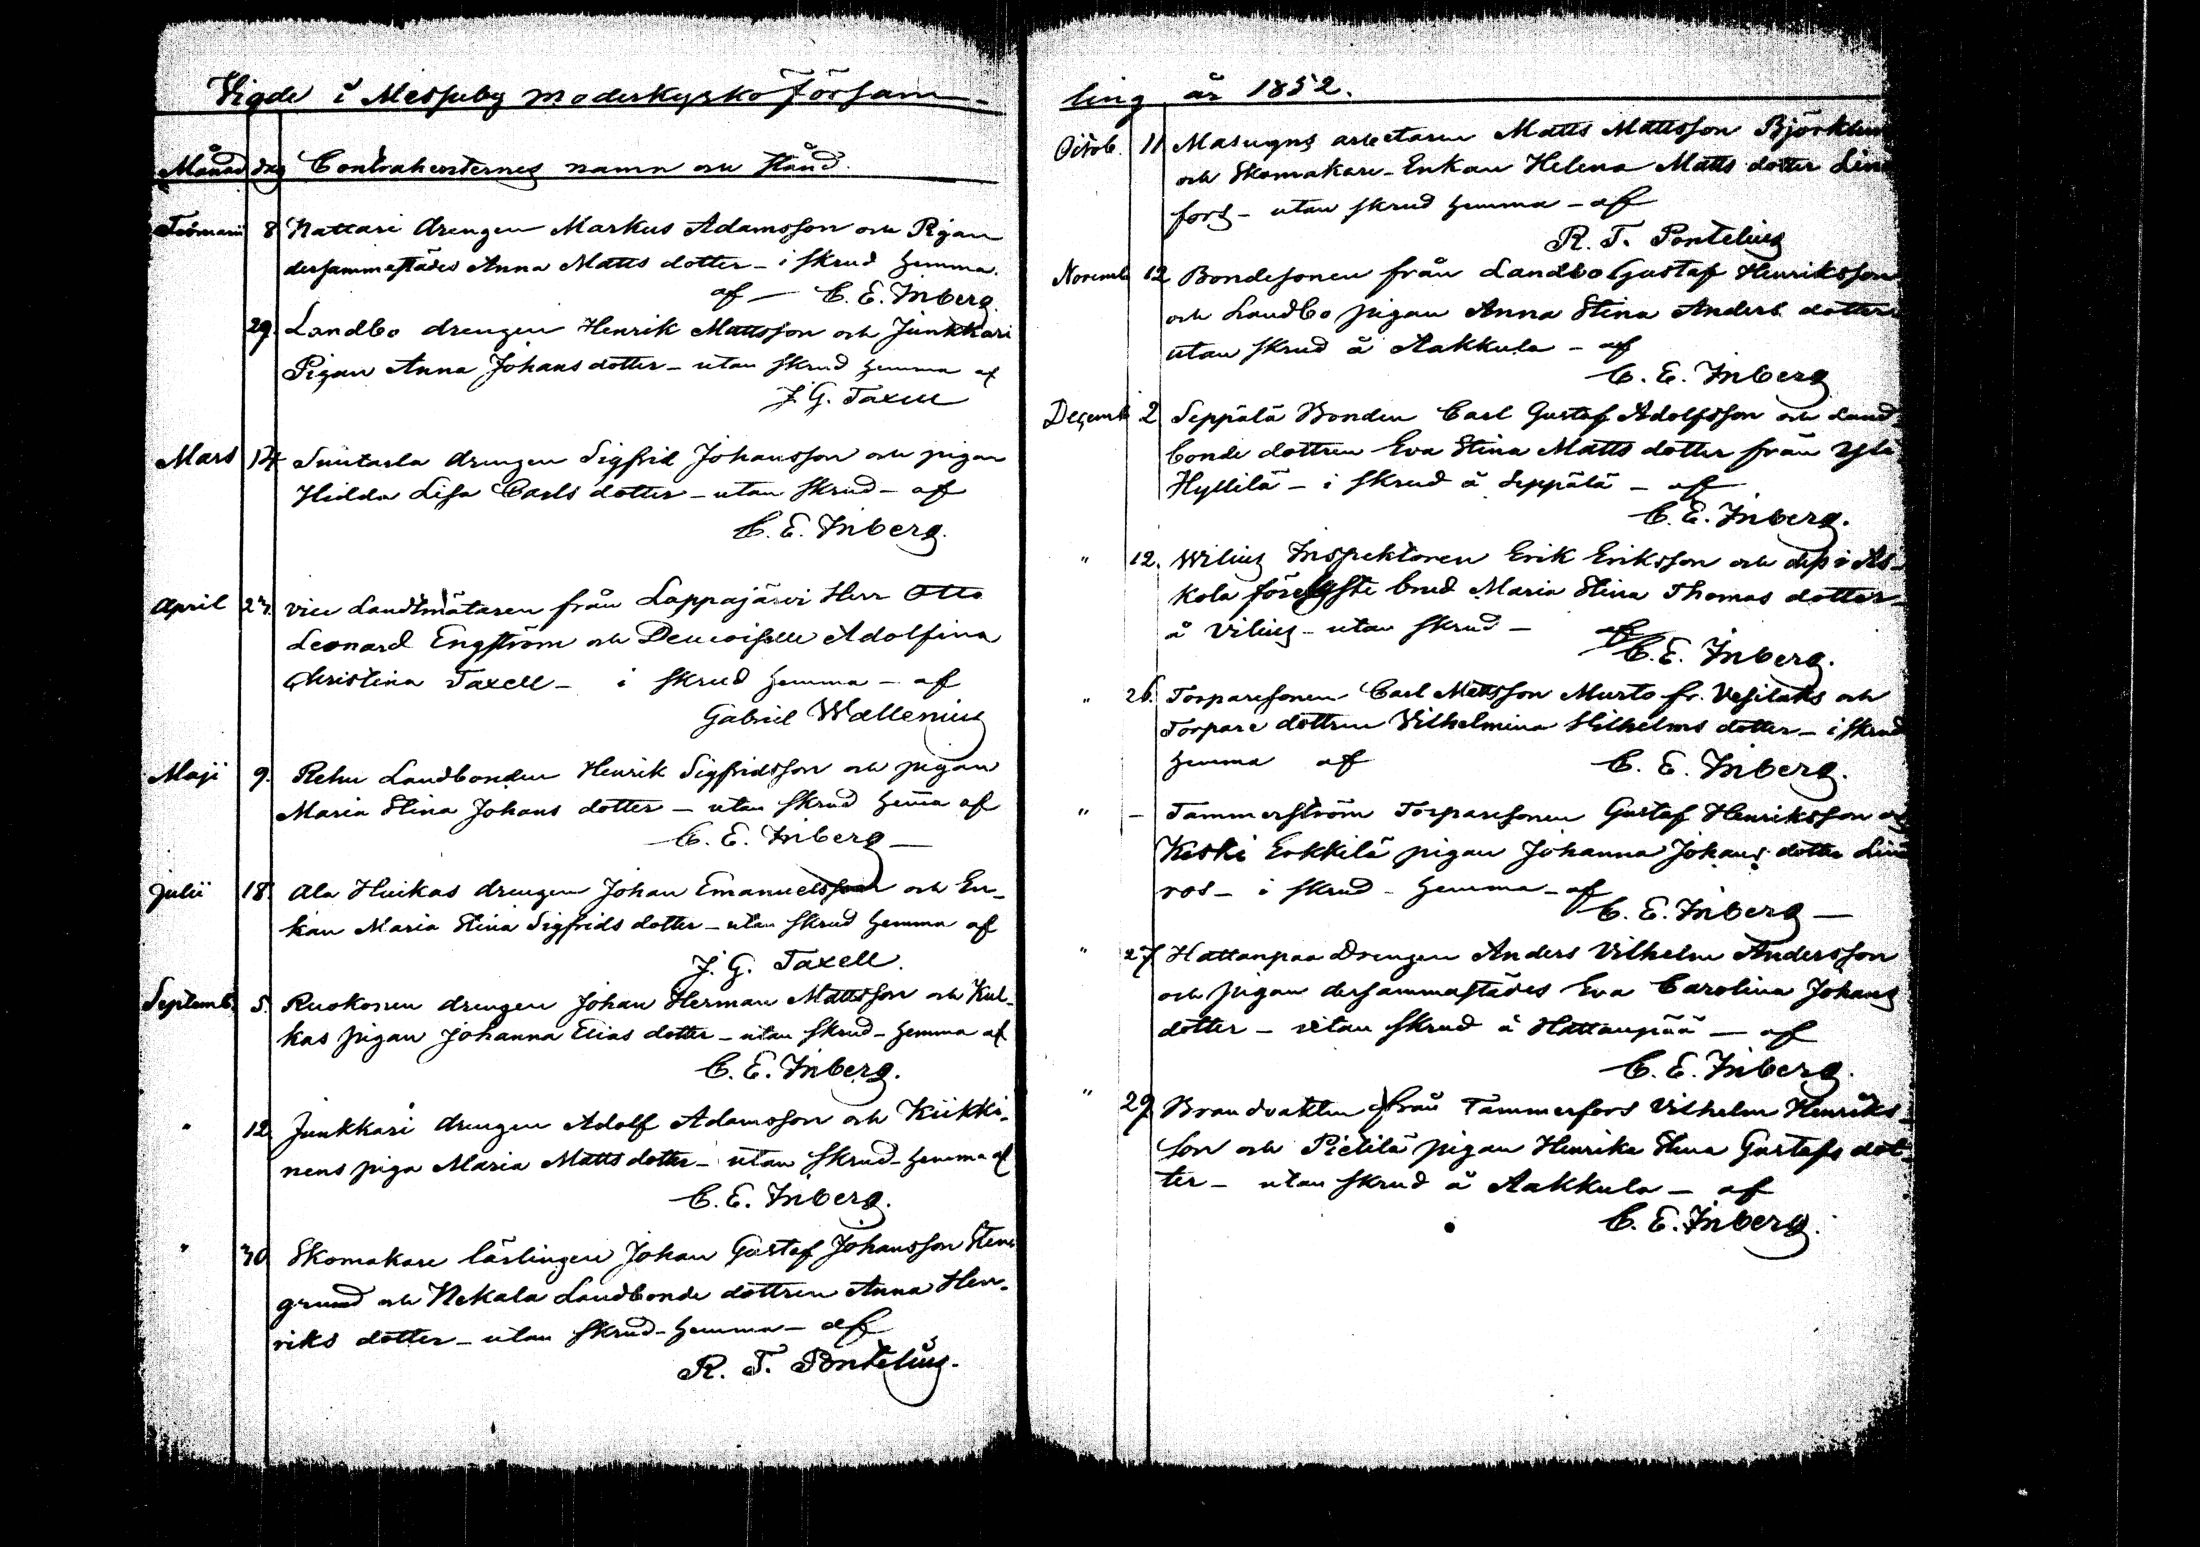 Vigde i Messuby moderkyrko Församling år 1852.
Månad dag Contrahenternes namn och Stånd.
Februarii 8 Hattari drengen Markus Adamsson och Pigan
dersammastädes Anna Matts dotter - i skrud hemma.
af — C. E. Inberg.
29. Landbo drengen Henrik Mattsson och Junkkari
Pigan Anna Johans dotter - utan skrud hemma af
J. G. Taxell
Mars 14 drengen Sigfrid Johansson och pigan
Hedda Lisa Carls dotter - utan skrud - af
C. E. Inberg.
April 27. vice Landtmätaren från Lappajärvi Herr Otto
Leonard Engström och Demoiselle Adolfina
Christina Taxell - i skrud hemma - af
Gabriel Wallenius
Maji 9. Rehu Landbonden Henrik Sigfridsson och pigan
Maria Stina Johans dotter - utan skrud hemma af
C. E. Inberg —
Julii 18. Ala Huikas drengen Johan Emanuelsson och En-
kan Maria Stina Sigfrids dotter - utan skrud hemma af
J. G. Taxell.
Septemb. 5. Ruokonen drengen Johan Herman Mattsson och Kul-
kas pigan Johanna Elias dotter - utan skrud - hemma af
C. E. Inberg.
" 12. Junkkari drengen Adolf Adamsson och Kiikki-
nens piga Maria Matts dotter - utan skrud - hemma af
C. E. Inberg.
" 30 Skomakare lärlingen Johan Gustaf Johansson Sten
grund och Nekala Landbonde dottren Anna Hen-
riks dotter - utan skrud - hemma - af
R. T. Pontelius.
Octob. 11 Masugns arbetaren Matts Mattsson Björklun
och Skomakare-Enkan Helena Matts dotter Lin
fors - utan skrud hemma - af
R. T. Pontelius
Novemb 12 Bondesonen från Landbo Gustaf Henriksson
och Landbo pigan Anna Stina Anders dotter
utan skrud å Aakkula - af
C. E. Inberg
Decemb 2 Seppälä Bonden Carl Gustaf Adolfsson och Land
bonde dottren Eva Stina Matts dotter från Yli
Hyllilä - i skrud å Seppälä - af
C. E. Inberg.
" 12. Wilius Inspektoren Erik Eriksson och dess i As-
kola brud Maria Stina Thomas dotter -
å Vilius - utan skrud - af
C. E. Inberg.
" 26. Torparesonen Carl Mattsson Murto fr. Vesilaks och
Torpare dottren Vilhelmina Vilhelms dotter - i skrud
hemma af C. E. Inberg.
" - Tammerström Torparesonen Gustaf Henriksson och
Keski Erkkilä pigan Johanna Johans dotter Lin
ros - i skrud - hemma - af
C. E. Inberg —
" 27 Hattanpaa Drengen Anders Vilhelm Andersson
och pigan dersammastädes Eva Carolina Johans
dotter - utan skrud å Hattanpää — af
C. E. Inberg.
" 29 Brandvakten från Tammerfors Vilhelm Henriks-
son och Pietilä pigan Henrika Stina Gustafs dot-
ter - utan skrud å Aakkula - af
C. E. Inberg.